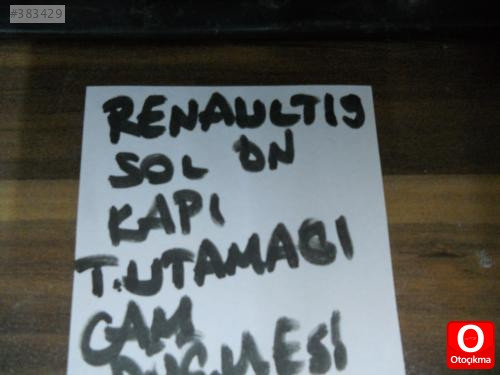 #383429
RENAULT19
SOL ÖN
KAPI
T.UTAMAGI
CAM
DÜĞMESİ
O
Otoçıkma